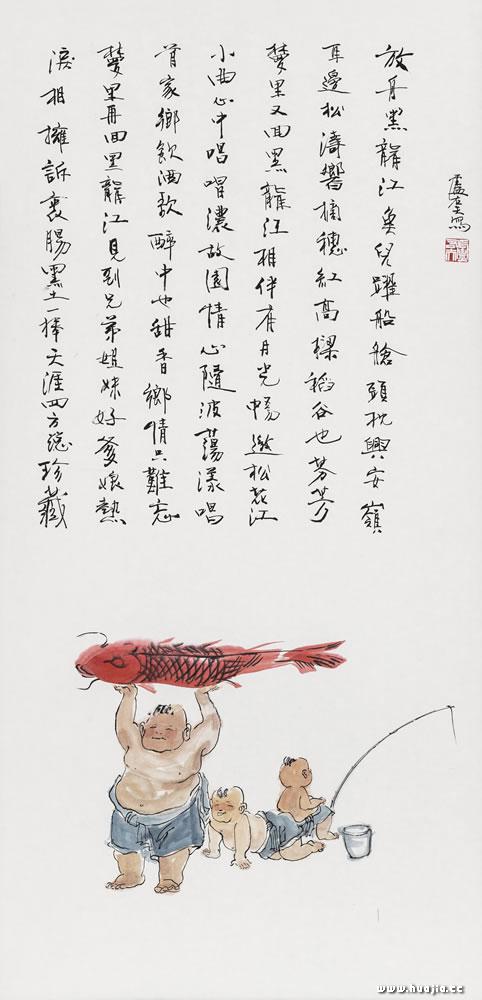 放舟黑龍江魚兒躍船艙頭枕興安嶺
耳邊松濤響摘穗紅高樑稻谷也芬芳
夢里又回黑龍江相伴有月光暢遊松花江
小曲心中唱唱濃故園情心隨波蕩漾唱
首家鄉飲酒歌醉中也甜香鄉情只難忘
夢里再回黑龍江見到兄弟姐妹好爹娘熱
淚相擁訴衷腸黑土一捧天涯四方總珍藏
寫
www.huajia.cc